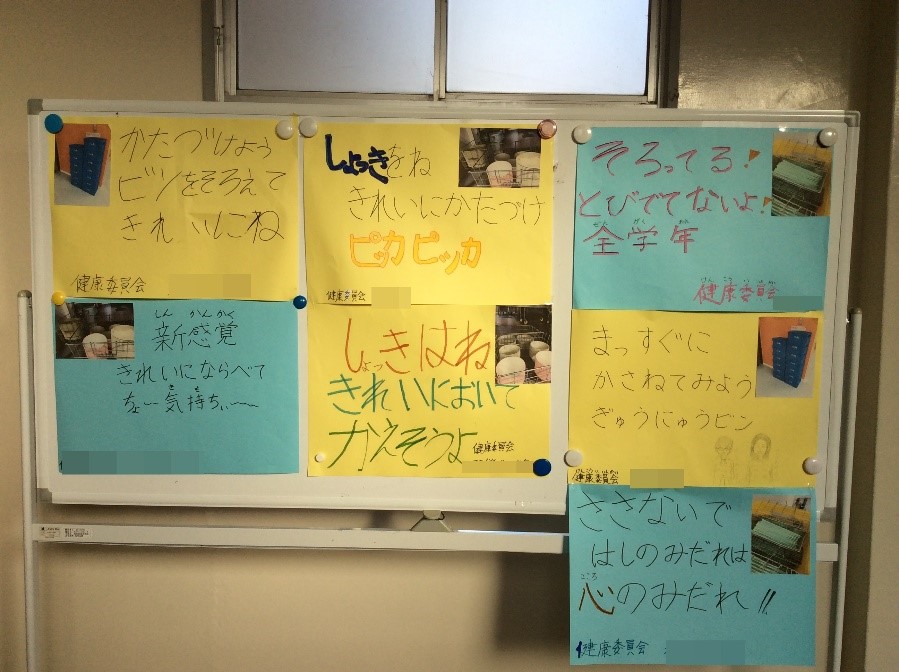 かたづけよう
ビンをそろえて
きれいにね
健康委員会
しょっきをね
きれいにかたづけ
ピッカピッカ
健康委員会
そろってる!
とびでてないよ!
ぜん がく ねん
全学年
けん こう い いん かい
健康委員会
しん かんかく
新感覚
きれいにならべて
き も
を一気持ちぃ〜〜
しょっきはね
きれいにおいて
かえそうよ
健康委員会
まっすぐに
かさねてみよう
ぎゅうにゅうビン
けんこういいんかい
健康委員会
ささないで
はしのみだれは
こころ
心のみだれ!!
健康委員会